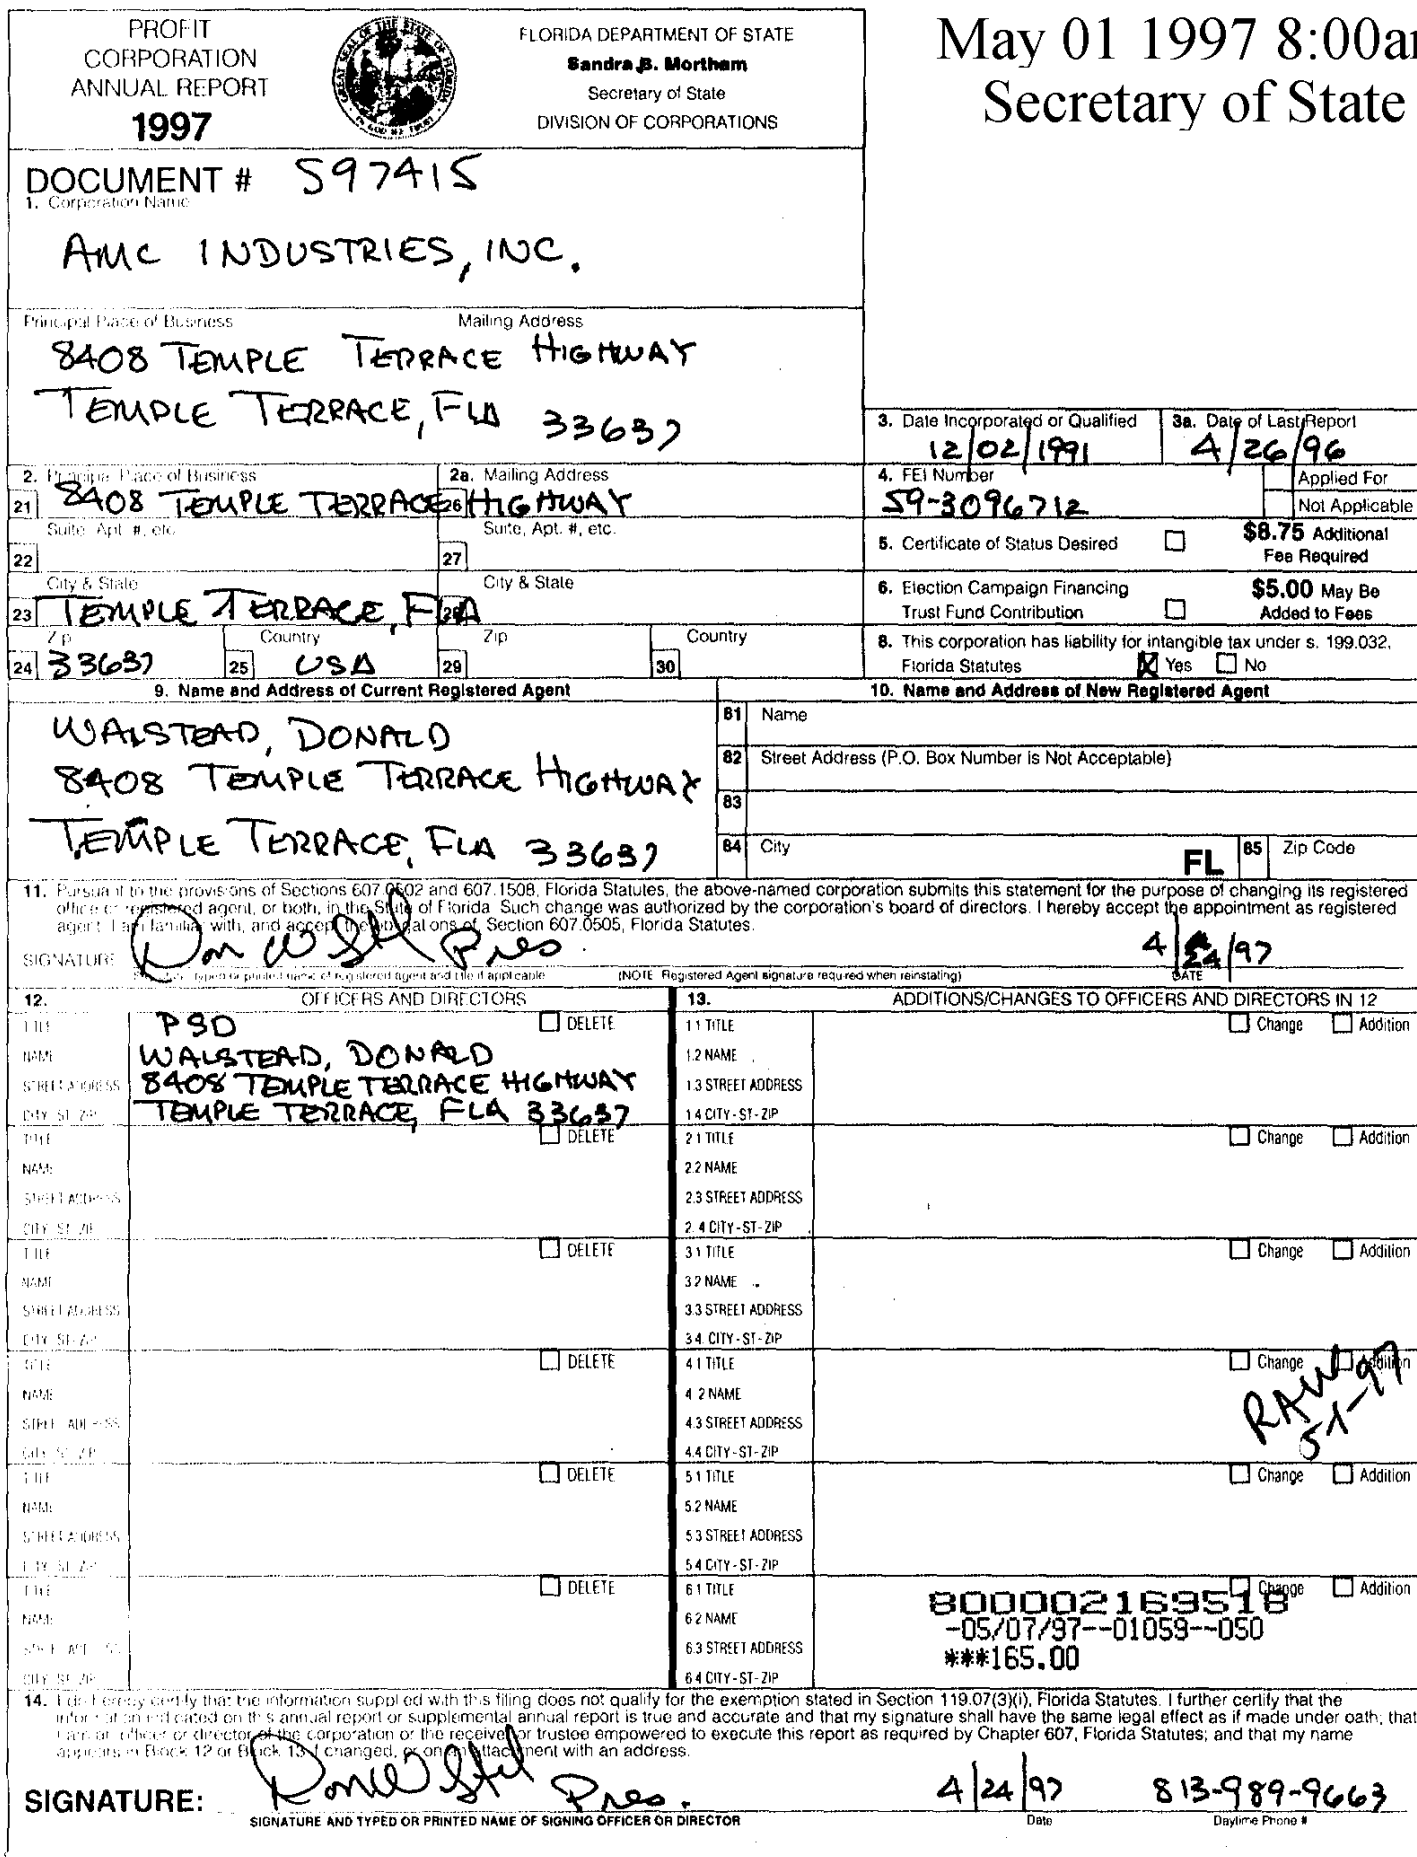 PROFIT
CORPORATION
ANNUAL REPORT
1997
FLORIDA DEPARTMENT OF STATE
Sandra B. Mortham
Secretary of State
DIVISION OF CORPORATIONS
May 01 1997 8:00a
Secretary of State
DOCUMENT # S97415
1. Corporation Name
AMC INDUSTRIES, INC.
Principal Place of Business Mailing Address
8408 TEMPLE TERRACE HIGHWAY
TEMPLE TERRACE, FLA 33637
3. Date Incorporated or Qualified
12/02/1991
3a. Date of Last Report
4/26/96
2. Principal Place of Business 2a. Mailing Address
21 8408 TEMPLE TERRACE 26 HIGHWAY
4. FEI Number
59-3096712
Applied For
Not Applicable
Suite, Apt. #, etc. Suite, Apt. #, etc.
22 27
5. Certificate of Status Desired
$8.75 Additional
Fee Required
City & State City & State
23 TEMPLE TERRACE, FLA 28
6. Election Campaign Financing
Trust Fund Contribution
$5.00 May Be
Added to Fees
Zip Country Zip Country
24 33637 25 USA 29 30
8. This corporation has liability for intangible tax under s. 199.032,
Florida Statutes X Yes No
9. Name and Address of Current Registered Agent
WALSTEAD, DONALD
8408 TEMPLE TERRACE HIGHWAY
TEMPLE TERRACE, FLA 33637
10. Name and Address of New Registered Agent
81 Name
82 Street Address (P.O. Box Number is Not Acceptable)
83
84 City FL 85 Zip Code
11. Pursuant to the provisions of Sections 607.0502 and 607.1508, Florida Statutes, the above-named corporation submits this statement for the purpose of changing its registered
office or registered agent, or both, in the State of Florida. Such change was authorized by the corporation's board of directors. I hereby accept the appointment as registered
agent. I am familiar with, and accept the obligations of, Section 607.0505, Florida Statutes.
SIGNATURE Pres 4/24/97
typed or printed name of registered agent and title if applicable (NOTE Registered Agent signature required when reinstating) DATE
12. OFFICERS AND DIRECTORS
TITLE PSD DELETE
NAME WALSTEAD, DONALD
STREET ADDRESS 8408 TEMPLE TERRACE HIGHWAY
CITY-ST-ZIP TEMPLE TERRACE, FLA 33637
TITLE DELETE
NAME
STREET ADDRESS
CITY-ST-ZIP
TITLE DELETE
NAME
STREET ADDRESS
CITY-ST-ZIP
TITLE DELETE
NAME
STREET ADDRESS
CITY-ST-ZIP
TITLE DELETE
NAME
STREET ADDRESS
CITY-ST-ZIP
TITLE DELETE
NAME
STREET ADDRESS
CITY-ST-ZIP
13. ADDITIONS/CHANGES TO OFFICERS AND DIRECTORS IN 12
1 1 TITLE Change Addition
1.2 NAME
1.3 STREET ADDRESS
1 4 CITY-ST-ZIP
2 1 TITLE Change Addition
2.2 NAME
2.3 STREET ADDRESS
2. 4 CITY-ST-ZIP
3 1 TITLE Change Addition
3 2 NAME
3.3 STREET ADDRESS
3 4. CITY-ST-ZIP
4 1 TITLE Change Addition
4 2 NAME
4.3 STREET ADDRESS
4.4 CITY-ST-ZIP
RAW
5-1-97
5 1 TITLE Change Addition
5.2 NAME
5 3 STREET ADDRESS
5 4 CITY-ST-ZIP
6 1 TITLE Change Addition
6 2 NAME
6.3 STREET ADDRESS
6 4 CITY-ST-ZIP
800002169518
-05/07/97--01059--050
***165.00
14. I do hereby certify that the information supplied with this filing does not qualify for the exemption stated in Section 119.07(3)(i), Florida Statutes. I further certify that the
information indicated on this annual report or supplemental annual report is true and accurate and that my signature shall have the same legal effect as if made under oath; that
I am an officer or director of the corporation or the receiver or trustee empowered to execute this report as required by Chapter 607, Florida Statutes; and that my name
appears in Block 12 or Block 13 if changed, or on an attachment with an address.
SIGNATURE: Pres. 4/24/97 813-989-9663
SIGNATURE AND TYPED OR PRINTED NAME OF SIGNING OFFICER OR DIRECTOR Date Daytime Phone #